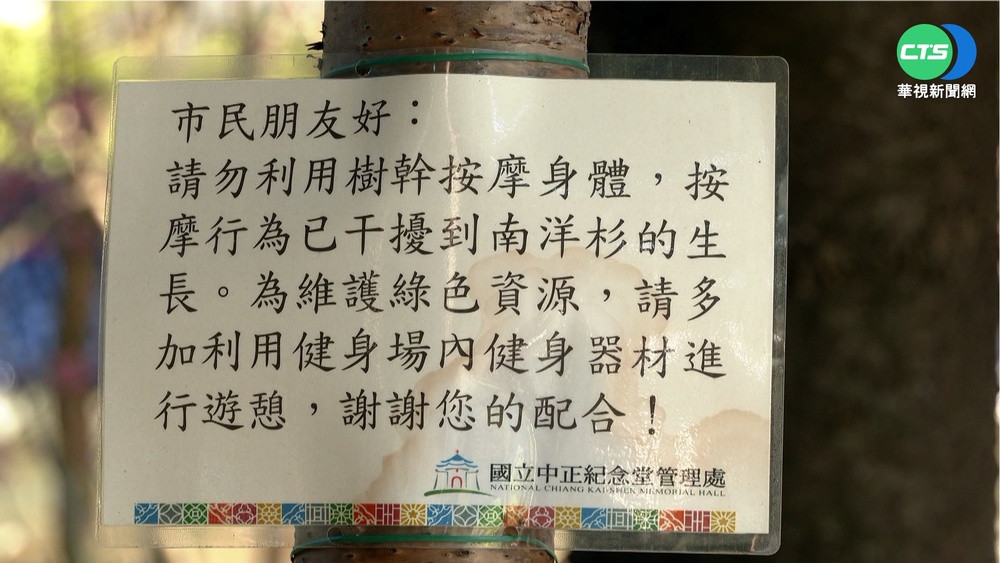 CTS
華視新聞網
市民朋友好：
請勿利用樹幹按摩身體，按
摩行為已干擾到南洋杉的生
長。為維護綠色資源，請多
加利用健身場內健身器材進
行遊憩，謝謝您的配合！
國立中正紀念堂管理處
NATIONAL CHIANG KAI-SHEK MEMORIAL HALL